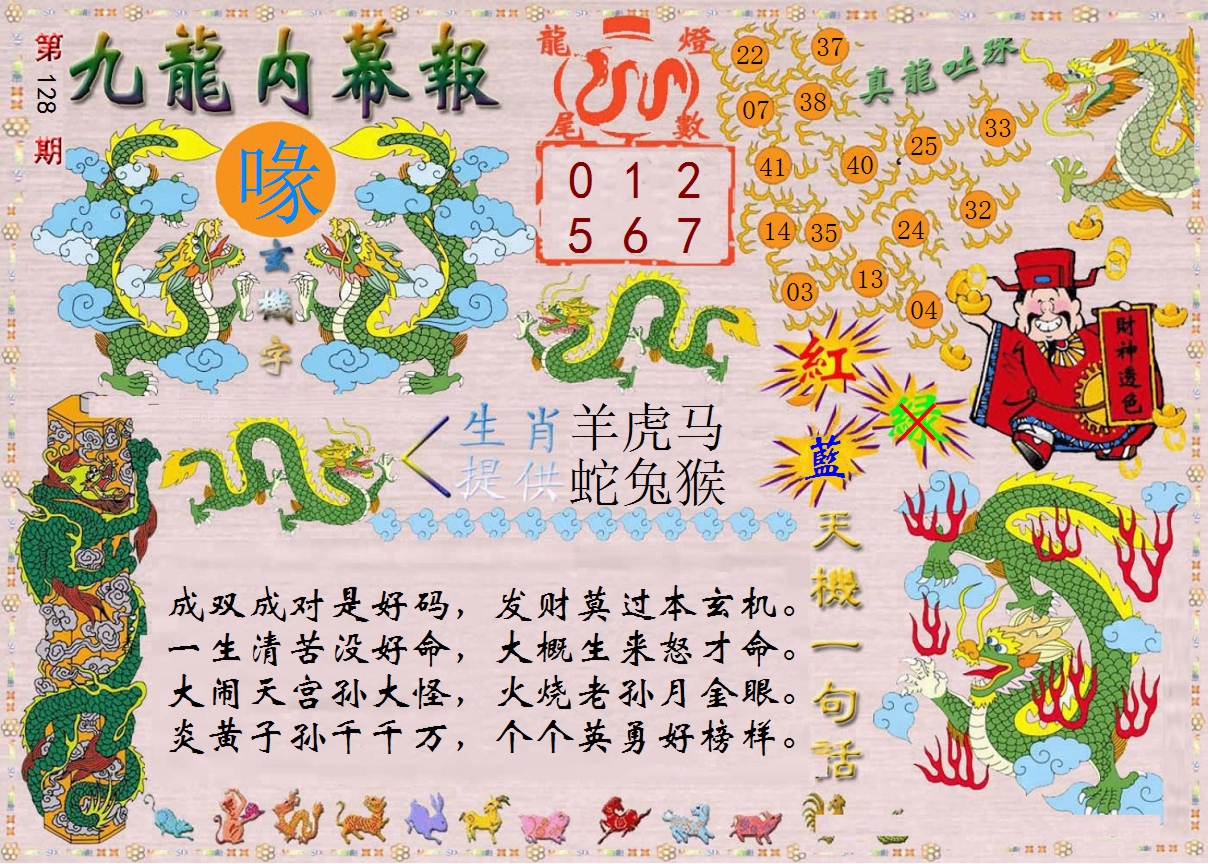 第128期
九龍内幕報
喙
玄機字
龍燈
尾數
0 1 2
5 6 7
真龍吐珠
22
37
07
38
41
40
25
33
14
35
24
32
03
13
04
紅
緑
藍
財神透色
生肖
提供
羊虎马
蛇兔猴
成双成对是好码，发财莫过本玄机。
一生清苦没好命，大概生来怒才命。
大闹天宫孙大怪，火烧老孙月金眼。
炎黄子孙千千万，个个英勇好榜样。
天機一句話